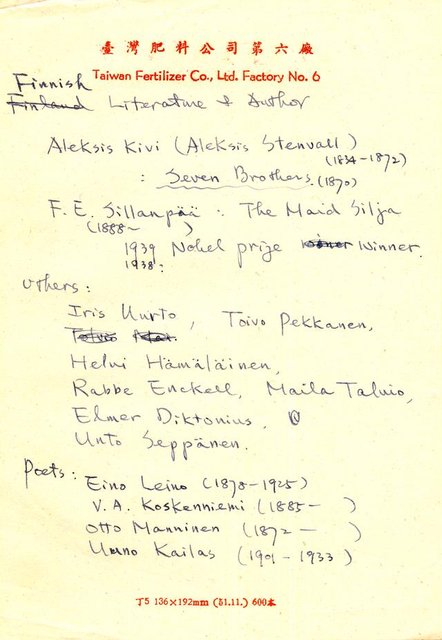 臺灣肥料公司第六廠
Taiwan Fertilizer Co., Ltd. Factory No. 6
Finnish
Finland Literature & Author
Aleksis Kivi (Aleksis Stenvall)
(1834-1872)
: Seven Brothers. (1870)
F. E. Sillanpää : The Maid Silja
(1888- )
1939 Nobel prize winner Winner.
1938:
Others:
Iris Uurto, Toivo Pekkanen,
Helvi Hämäläinen,
Rabbe Enckell, Maila Talvio,
Elmer Diktonius,
Unto Seppänen.
Poets:
Eino Leino (1878-1925)
V. A. Koskenniemi (1885- )
Otto Manninen (1872 - )
Uuno Kailas (1901-1933)
丁5 136×192mm (51.11.) 600本